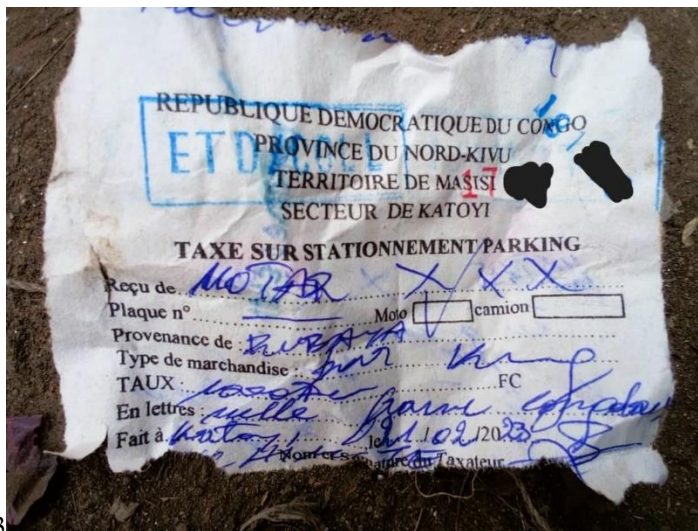 REPUBLIQUE DEMOCRATIQUE DU CONGO
PROVINCE DU NORD-KIVU
TERRITOIRE DE MASISI 17
SECTEUR DE KATOYI
TAXE SUR STATIONNEMENT PARKING
Reçu de MOTAR X X X
Plaque n° Moto camion
Provenance de : RUBAYA
Type de marchandise :
TAUX : FC
En lettres : mille congolais
Fait à le 21/02/2023
Nom et signature du Taxateur